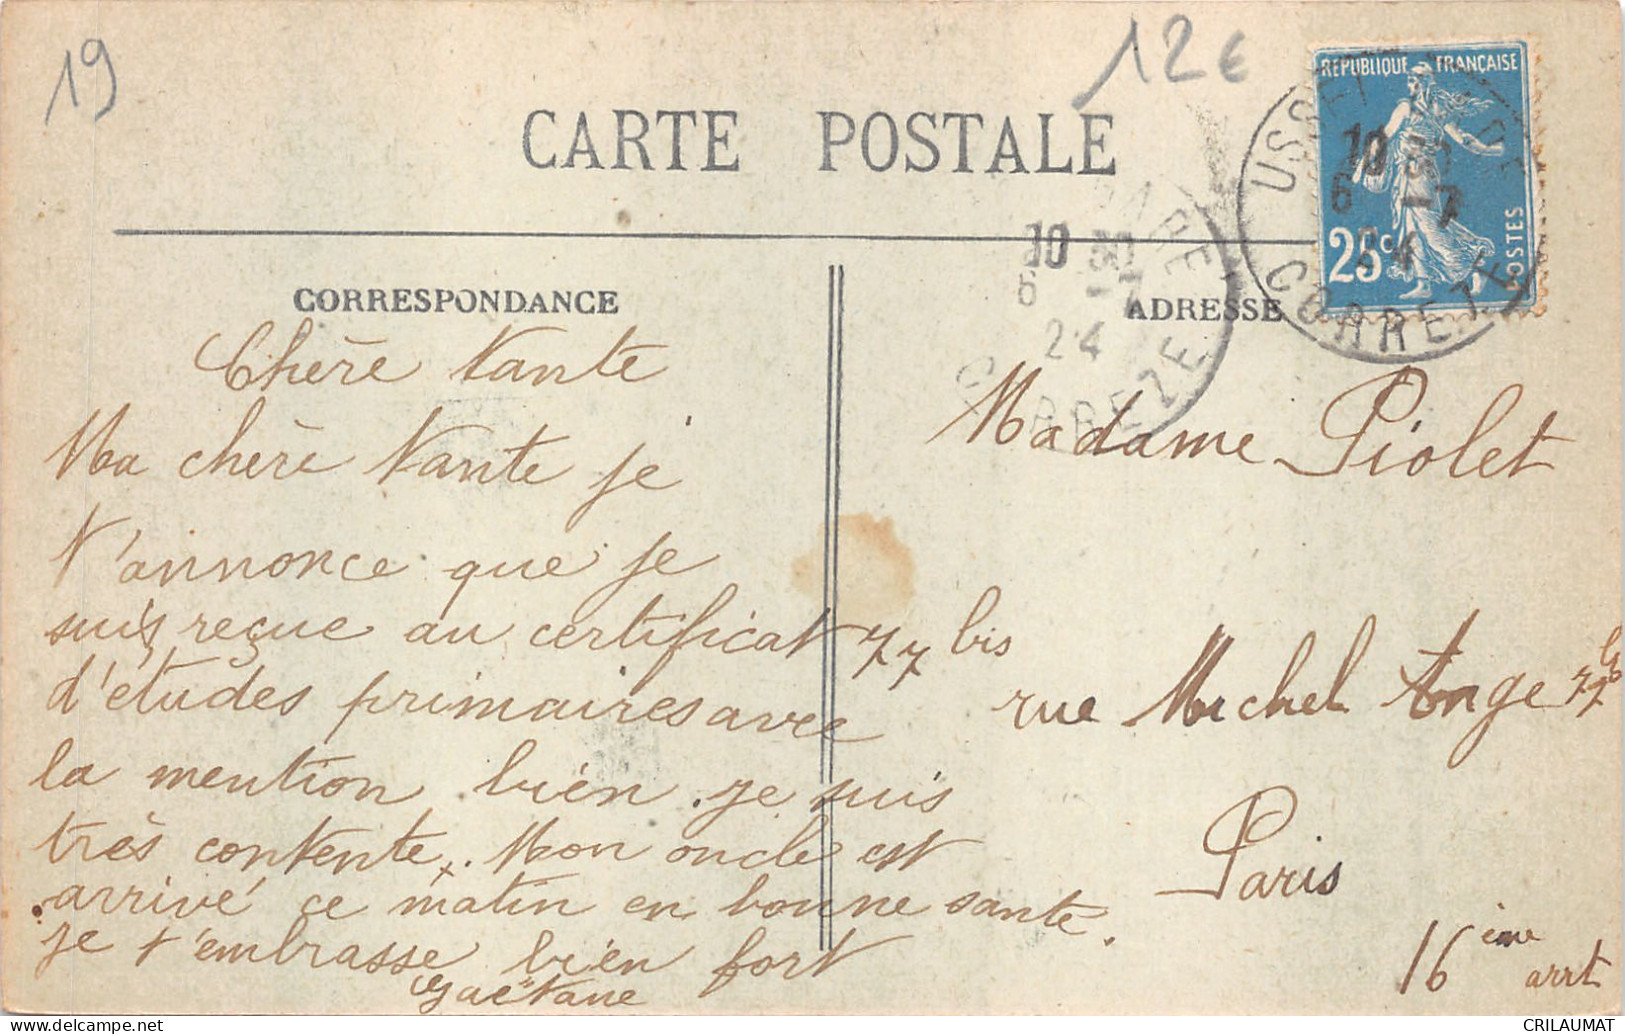 19
12€
CARTE POSTALE
REPUBLIQUE FRANÇAISE
25c
POSTES
USSEL
10 30
6 -7
24
CORREZE
10 30
6 -7
24
CORREZE
CORRESPONDANCE
ADRESSE
Chère tante
Ma chère tante je
t'annonce que je
suis reçue au certificat
d'études primaires avec
la mention bien. je suis
très contente. Mon oncle est
arrivé ce matin en bonne santé.
je t'embrasse bien fort
Gaëtane
Madame Piolet
77 bis
rue Michel Ange 77 b
Paris
16 ème arrt
CRILAUMAT